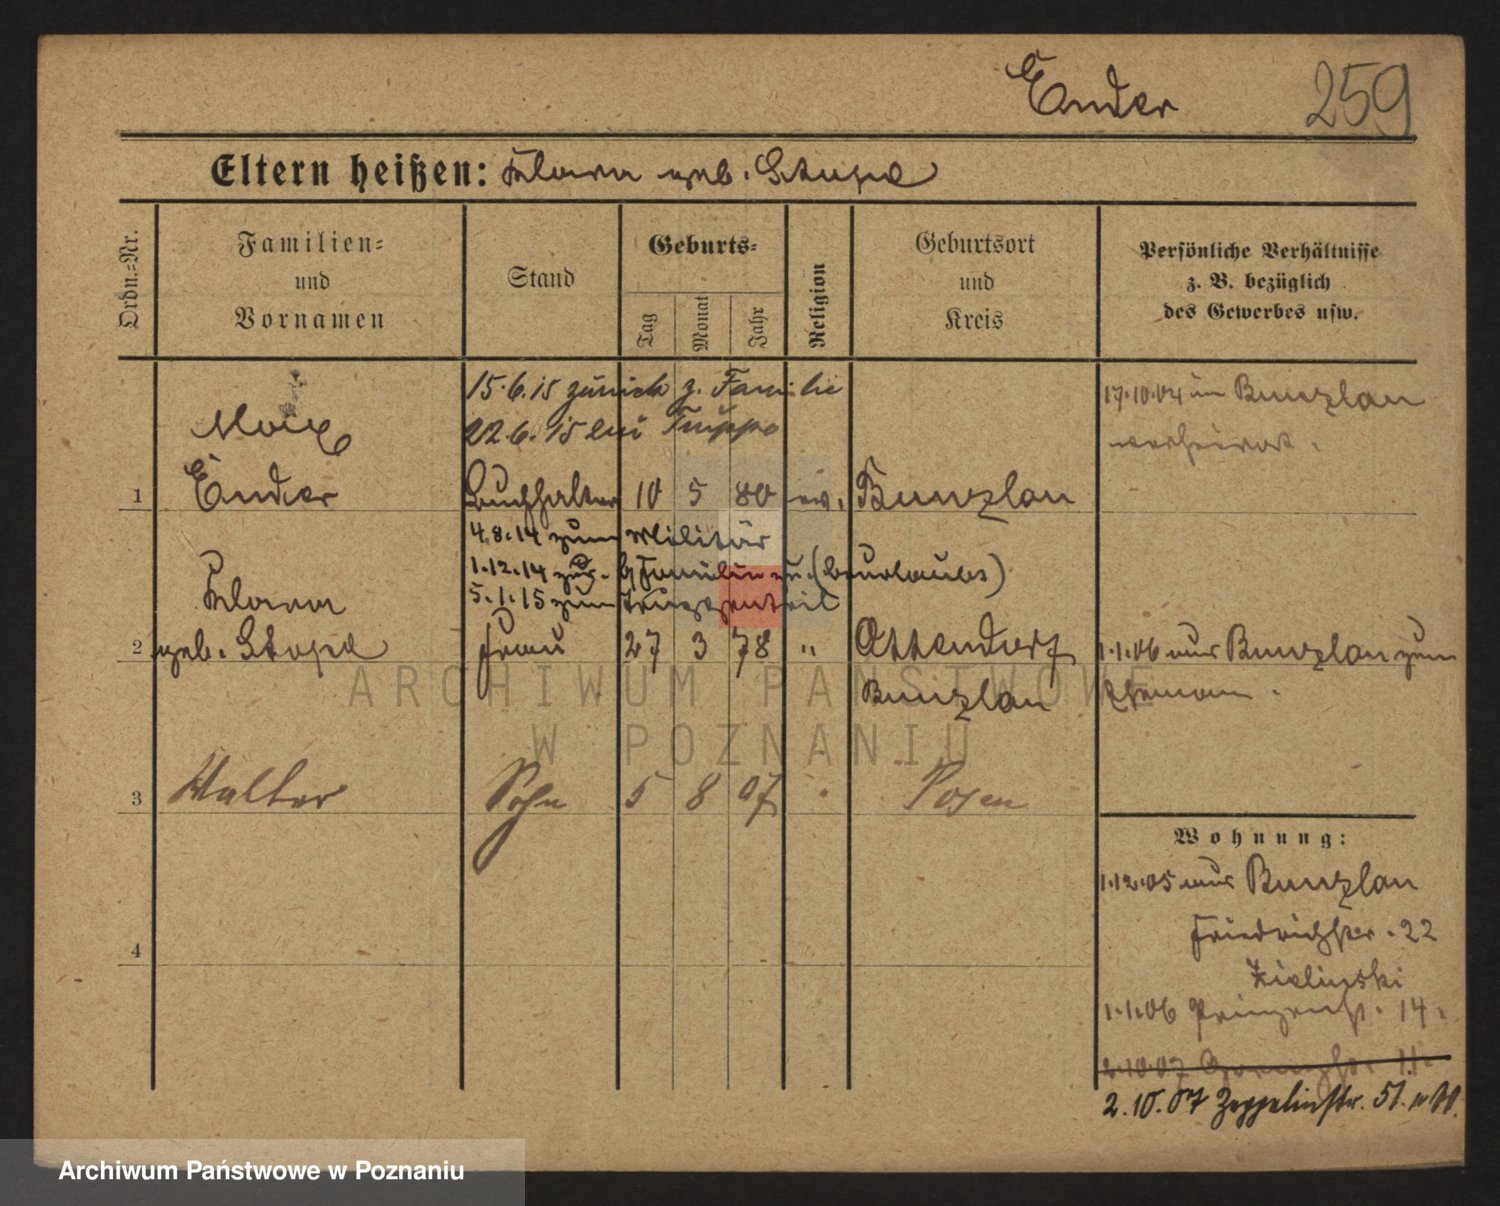 Ender 259
Eltern heißen: Klara geb. Stupe
Ordn.-Nr.
Familien-
und
Vornamen
Stand
Geburts-
Tag
Monat
Jahr
Religion
Geburtsort
und
Kreis
Persönliche Verhältnisse
z. B. bezüglich
des Gewerbes usw.
15.6.15 zurück z. Familie
22.6.15 zur Truppe
17.10.04 in Bunzlau
verheirat.
Max
1 Ender Buchhalter 10 5 80 ev. Bunzlau
4.8.14 zum Militär
1.12.14 zur Familie (beurlaubt)
5.1.15 zum Truppenteil
Klara
2 geb. Stupe Frau 27 3 78 " Ottendorf
Bunzlau
1.1.06 aus Bunzlau zum
Ehemann.
3 Walter Sohn 5 8 07 Posen
4
Wohnung:
1.12.05 aus Bunzlau
Friedrichstr. 22
Zielinski
1.1.06 Prinzenst. 14
2.10.07
2.10.07 Zeppelinstr. 51.
ARCHIWUM PAŃSTWOWE
W POZNANIU
Archiwum Państwowe w Poznaniu